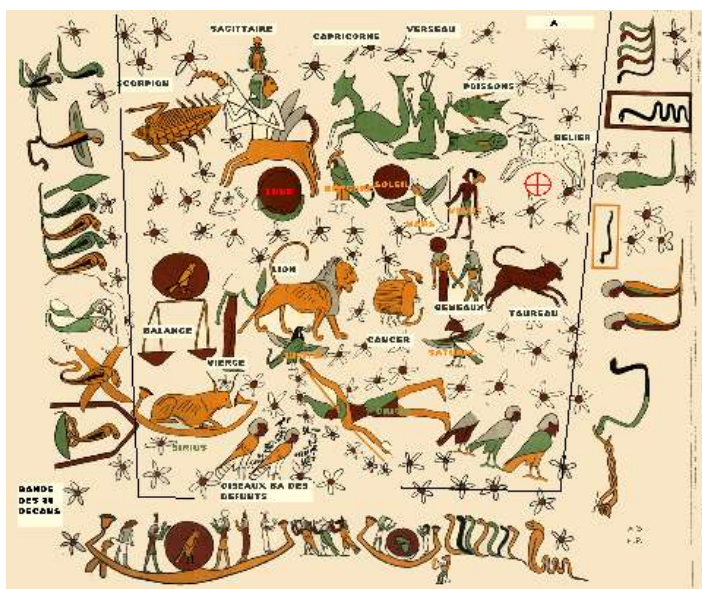 SAGITTAIRE
CAPRICORNE
VERSEAU
A
SCORPION
POISSONS
BELIER
LUNE
MERCURE
SOLEIL
MARS
VENUS
LION
GEMEAUX
TAUREAU
BALANCE
CANCER
VIERGE
SATURNE
ORION
SIRIUS
OISEAUX BA DES
DEFUNTS
BANDE
DES
DECANS